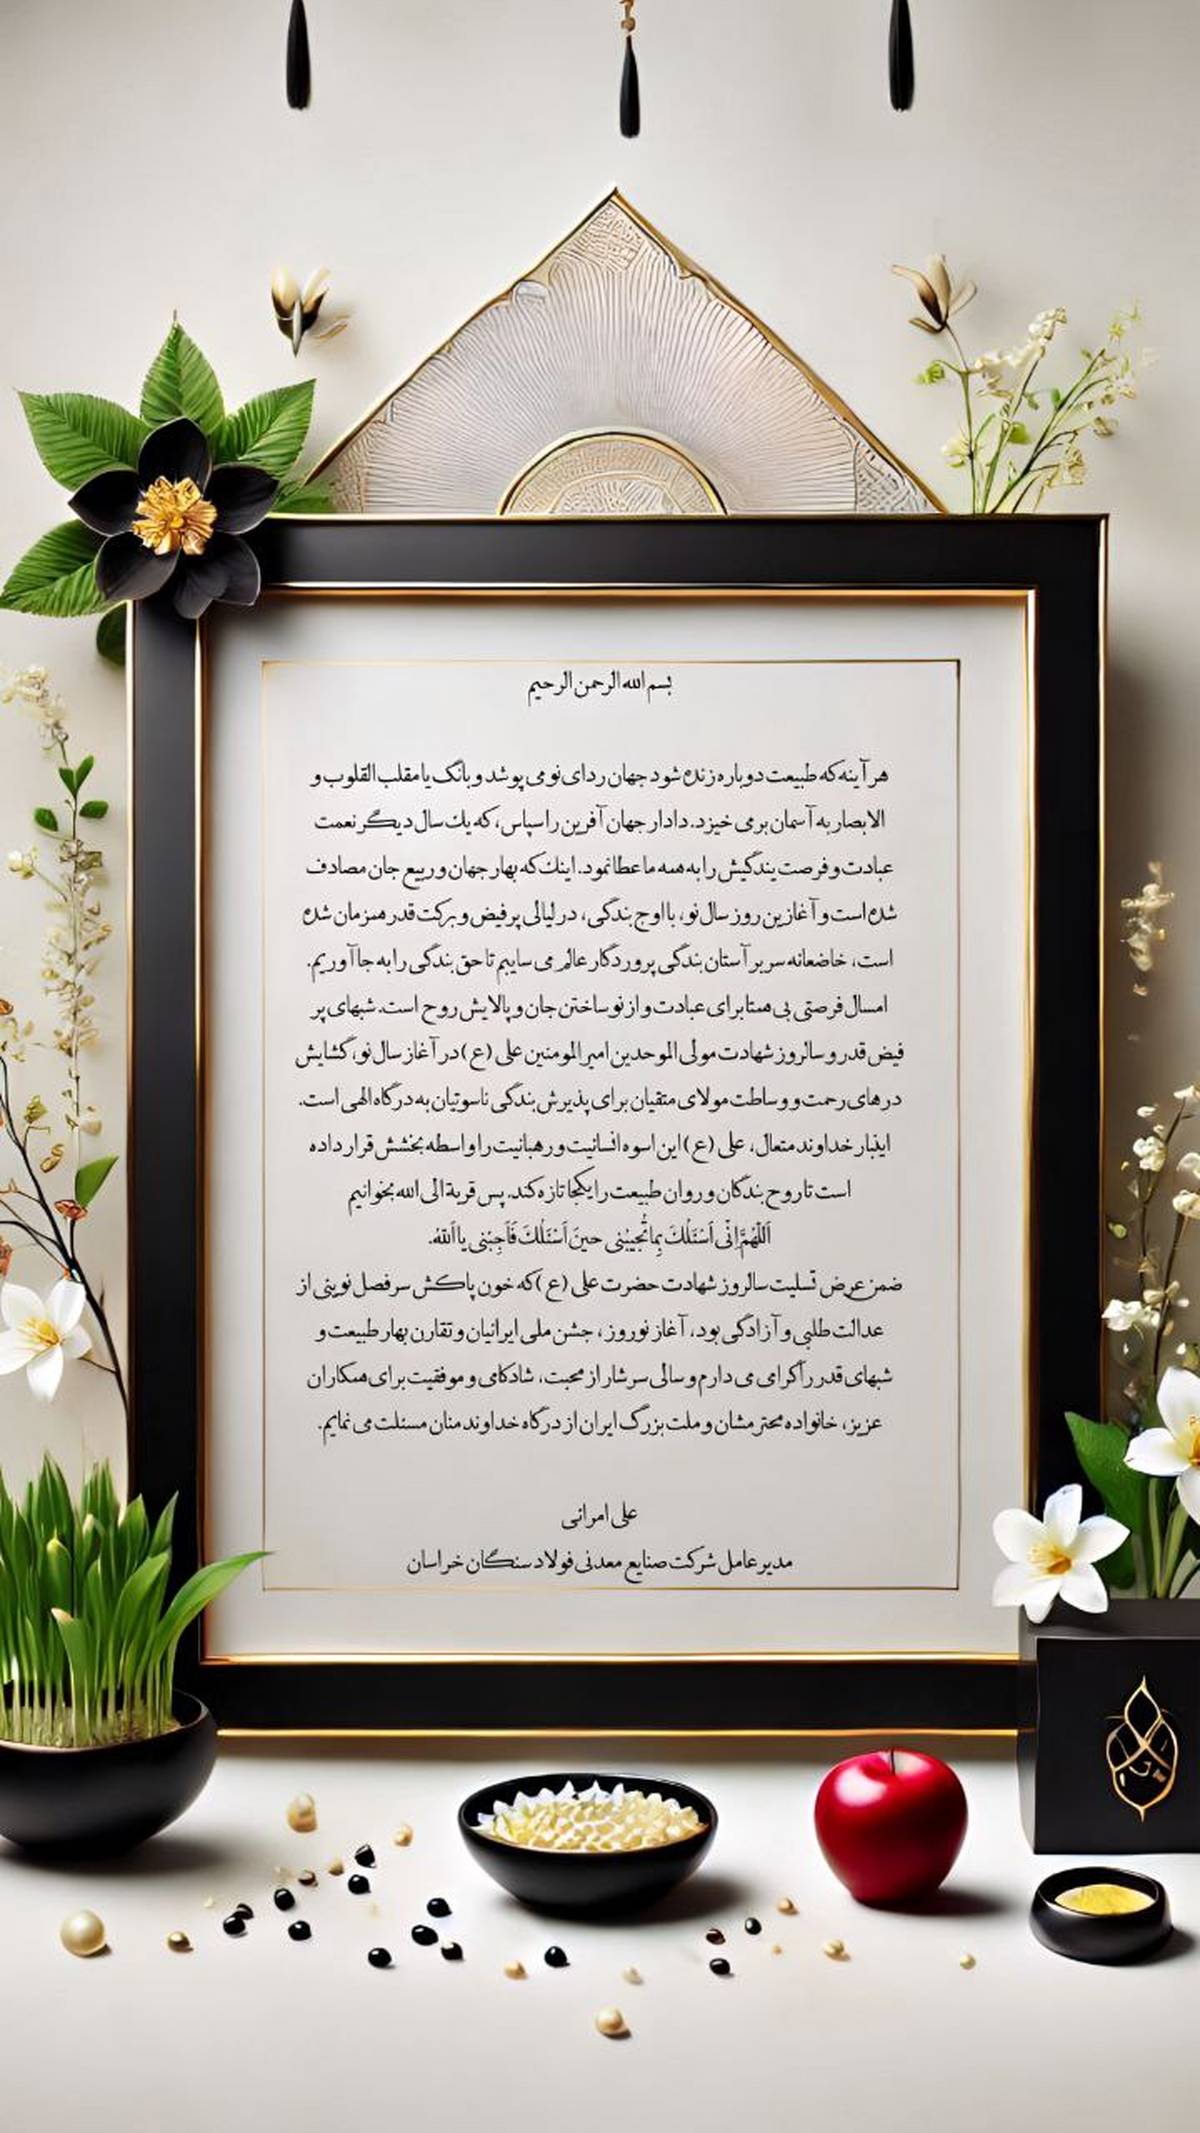 بسم الله الرحمن الرحیم
هر آینه که طبیعت دوباره زنده شود جهان ردای نو می پوشد و بانگ یا مقلب القلوب و
الابصار به آسمان بر می خیزد. دادار جهان آفرین را سپاس، که یک سال دیگر نعمت
عبادت و فرصت بندگیش را به همه ما عطا نمود. اینک که بهار جهان و ربیع جان مصادف
شده است و آغازین روز سال نو، با اوج بندگی، در لیالی پر فیض و برکت قدر همزمان شده
است، خاضعانه سر بر آستان بندگی پروردگار عالم می ساییم تا حق بندگی را به جا آوریم.
امسال فرصتی بی همتا برای عبادت و از نو ساختن جان و پالایش روح است. شبهای پر
فیض قدر و سالروز شهادت مولی الموحدین امیرالمومنین علی (ع) در آغاز سال نو، گشایش
درهای رحمت و وساطت مولای متقیان برای پذیرش بندگی ناسوتیان به درگاه الهی است.
اینبار خداوند متعال، علی (ع) این اسوه انسانیت و رهبانیت را واسطه بخشش قرار داده
است تا روح بندگان و روان طبیعت را یکجا تازه کند. پس قربة الی الله بخوانیم
اَللّهُمَّ اِنّی اَسْئَلُكَ بِما تُجیبُنی حینَ اَسْئَلُكَ فَاَجِبْنی یا اَللّهُ.
ضمن عرض تسلیت سالروز شهادت حضرت علی (ع) که خون پاکش سرفصل نوینی از
عدالت طلبی و آزادگی بود، آغاز نوروز، جشن ملی ایرانیان و تقارن بهار طبیعت و
شبهای قدر را گرامی می دارم و سالی سرشار از محبت، شادکامی و موفقیت برای همکاران
عزیز، خانواده محترمشان و ملت بزرگ ایران از درگاه خداوند منان مسئلت می نمایم.
علی امرانی
مدیر عامل شرکت صنایع معدنی فولاد سنگان خراسان